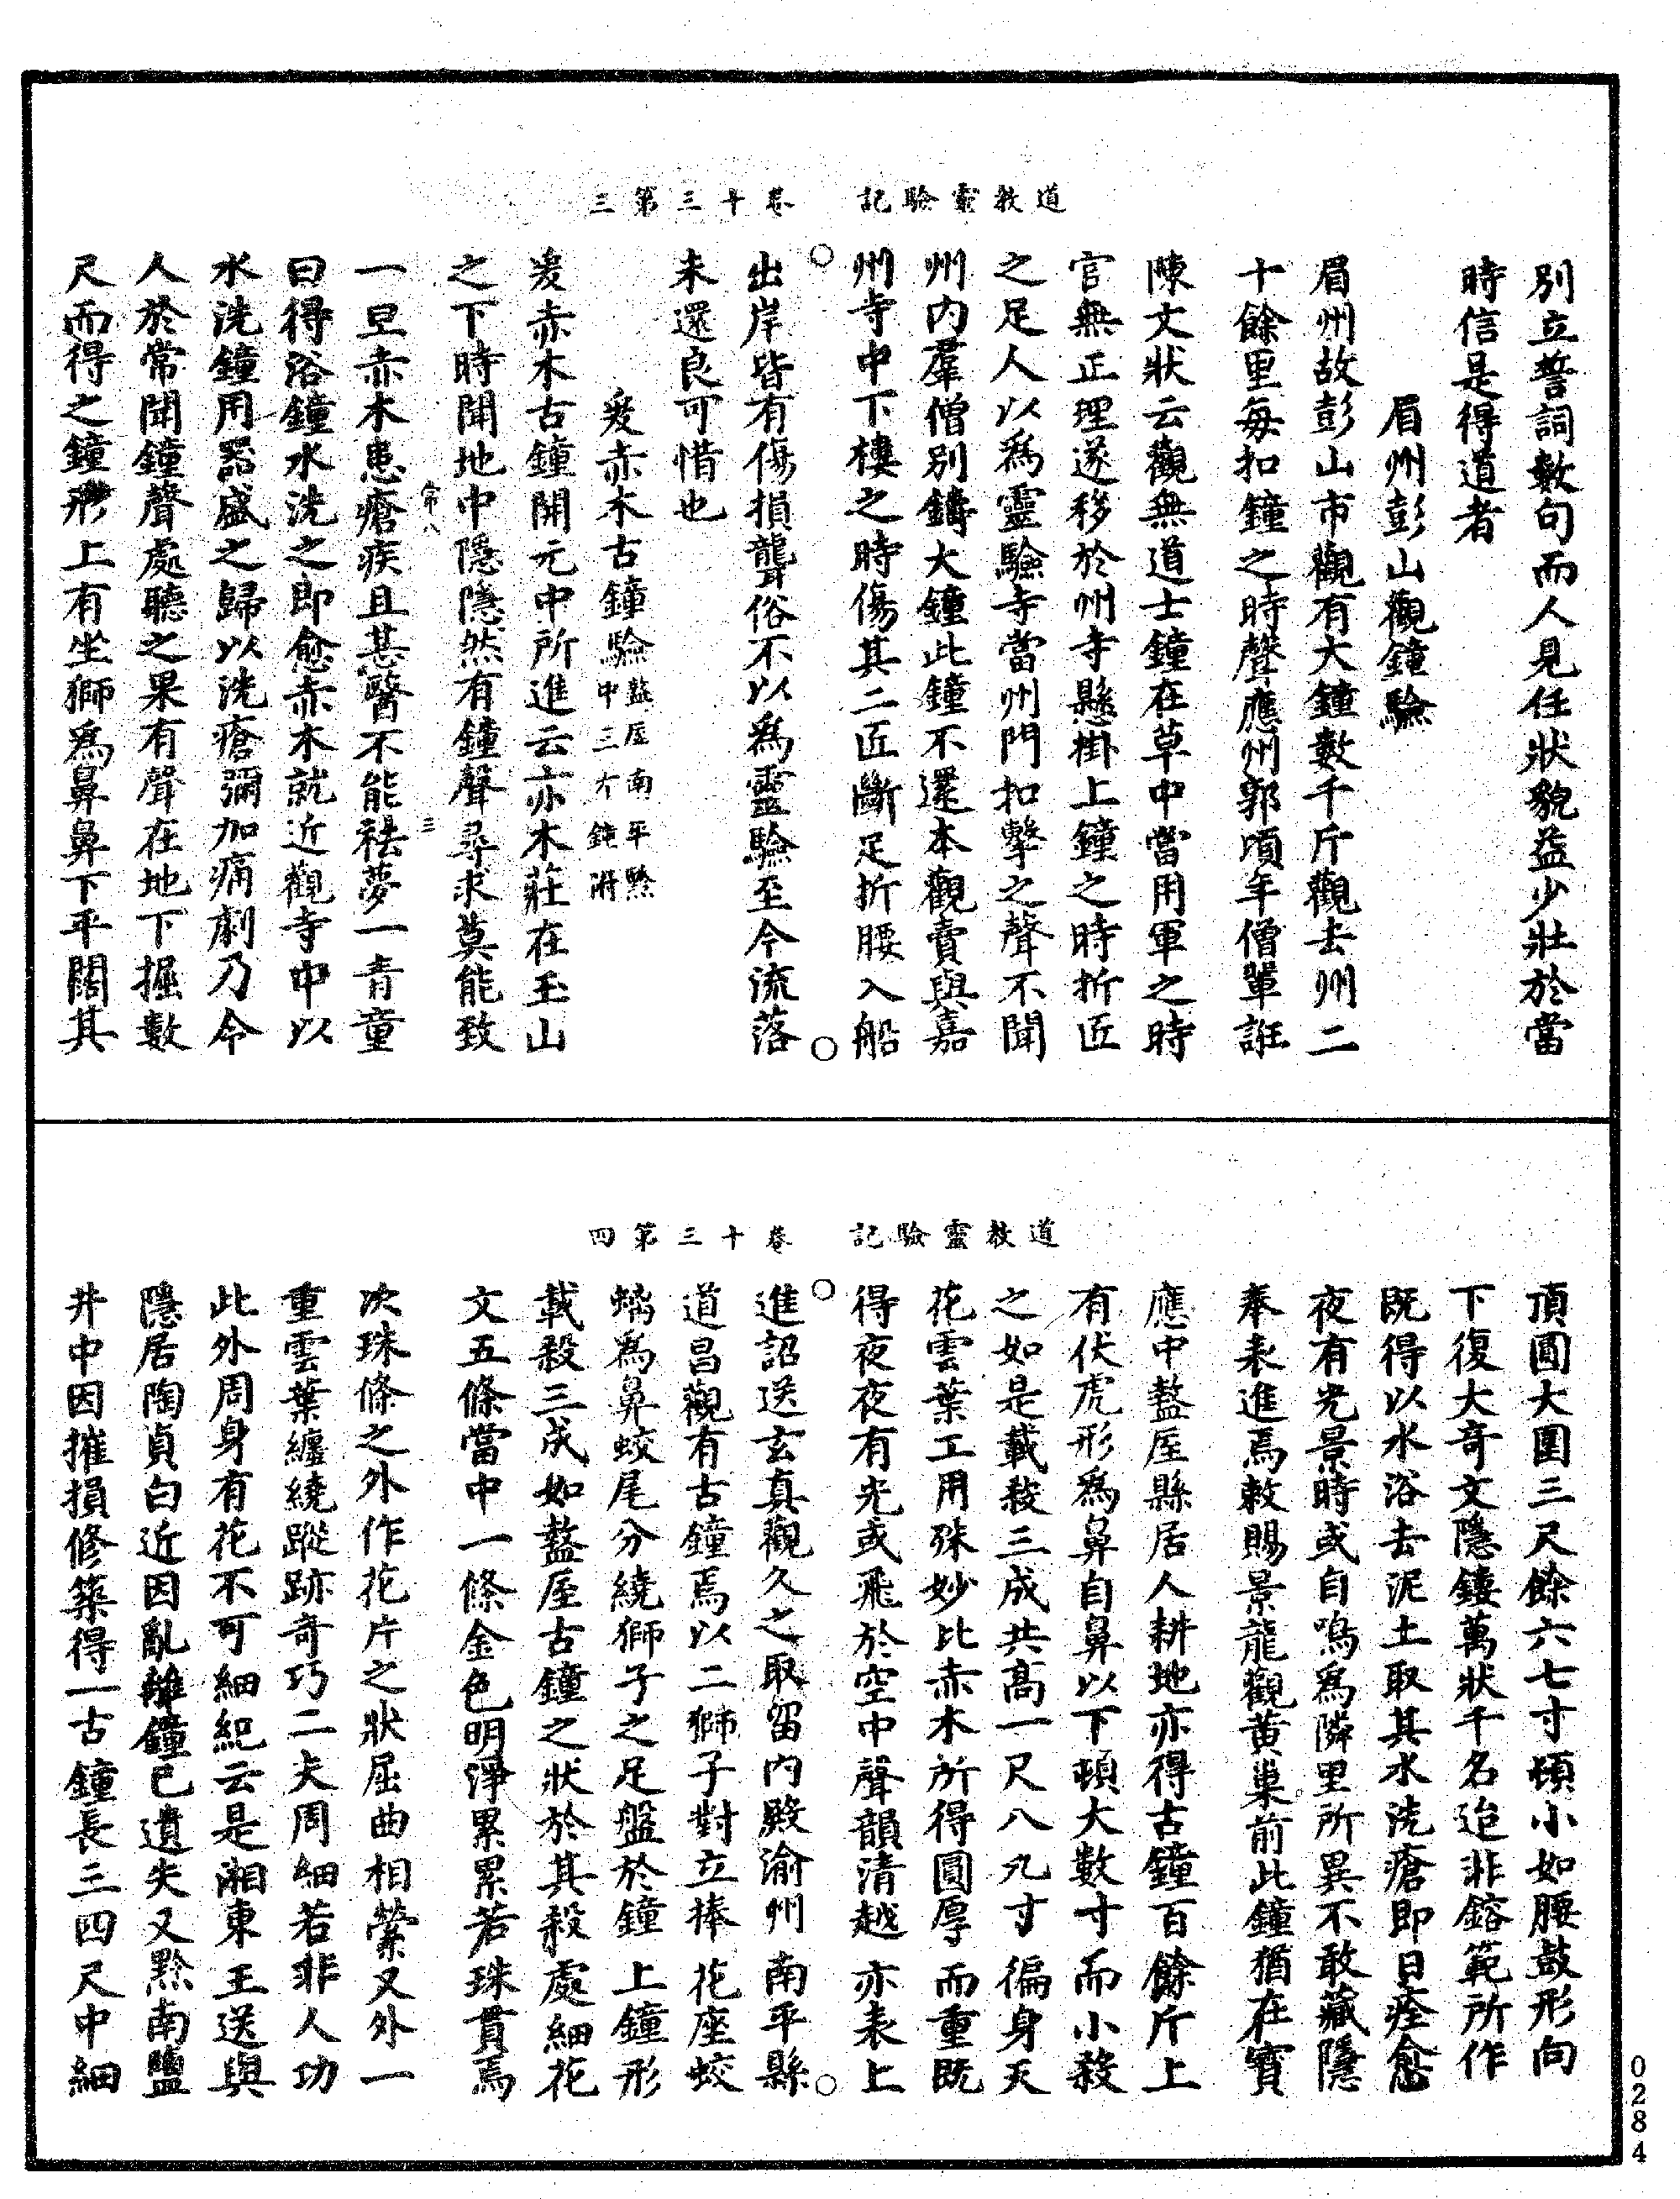 道教靈驗記　卷十三第三
別立誓詞數句而人見任狀貌益少壯於當
時信是得道者
眉州彭山觀鐘驗
眉州故彭山市觀有大鐘數千斤觀去州二
十餘里每扣鐘之時聲應州郭頃年僧輩誑
陳文狀云觀無道士鐘在草中當用軍之時
官無正理遂移於州寺懸掛上鐘之時折匠
之足人以為靈驗寺當州門扣擊之聲不聞
州內羣僧別鑄大鐘此鐘不還本觀賣與嘉
州寺中下樓之時傷其二匠斷足折腰入船
出岸皆有傷損聾俗不以為靈驗至今流落
未還良可惜也
爰赤木古鐘驗盩厔南平黔中三古鐘附
爰赤木古鐘開元中所進云亦木莊在玉山
之下時聞地中隱隱然有鐘聲尋求莫能致
常八　三
一旦赤木患瘡疾且甚醫不能祛夢一青童
曰得浴鐘水洗之即愈赤木就近觀寺中以
水洗鐘用器盛之歸以洗瘡彌加痛劇乃令
人於常聞鐘聲處聽之果有聲在地下掘數
尺而得之鐘形上有坐獅為鼻鼻下平闊其
道教靈驗記　卷十三第四
頂圓大圍三尺餘六七寸頓小如腰鼓形向
下復大奇文隱鏤萬狀千名迨非鎔範所作
既得以水浴去泥土取其水洗瘡即日痊愈
夜有光景時或自鳴為隣里所異不敢藏隱
奉表進焉敕賜景龍觀黃巢前此鐘猶在寶
應中盩厔縣居人耕地亦得古鐘百餘斤上
有伏虎形為鼻自鼻以下頓大數寸而小殺
之如是載殺三成共高一尺八九寸徧身天
花雲葉工用殊妙比赤木所得圓厚而重既
得夜夜有光或飛於空中聲韻清越亦表上
進詔送玄真觀久之取留內殿渝州南平縣
道昌觀有古鐘焉以二獅子對立捧花座蛟
螭為鼻蛟尾分繞獅子之足盤於鐘上鐘形
載殺三成如盩厔古鐘之狀於其殺處細花
文五條當中一條金色明淨累累若珠貫焉
次珠條之外作花片之狀屈曲相縈又外一
重雲葉纏繞蹤跡奇巧二夫周細若非人功
此外周身有花不可細紀云是湘東王送與
隱居陶貞白近因亂離鐘已遺失又黔南鹽
井中因摧損修築得一古鐘長三四尺中細
0284